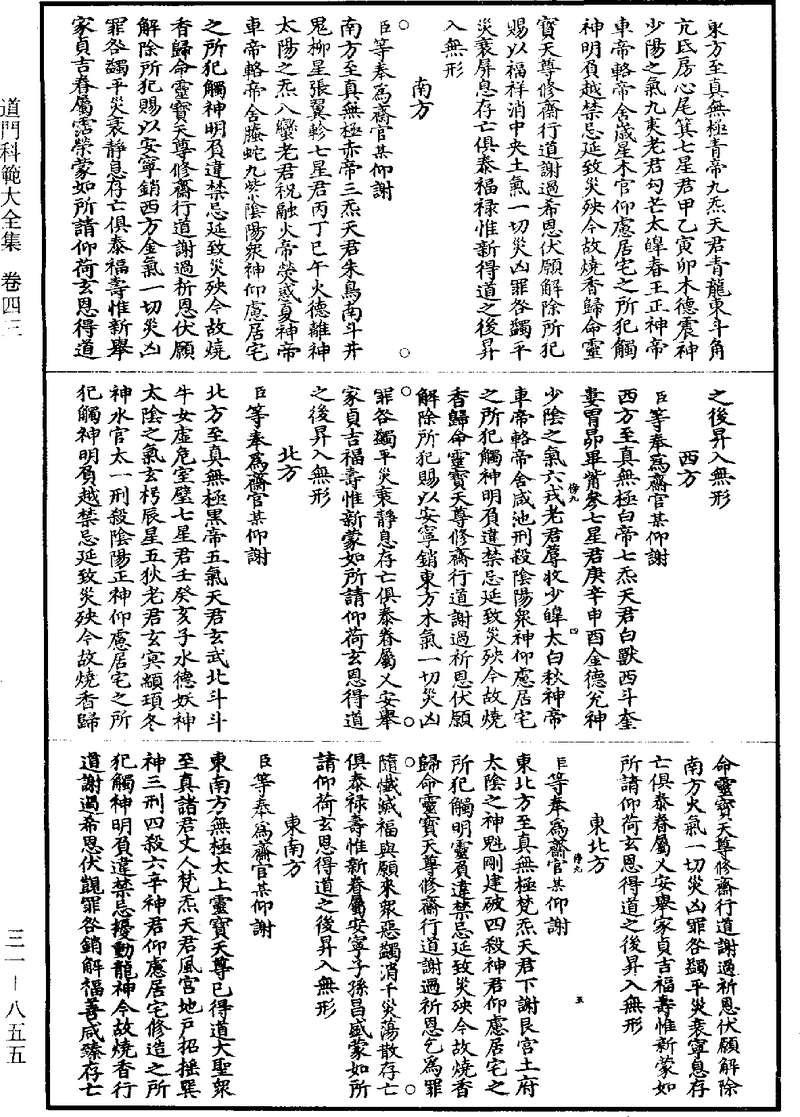 東方至真無極青帝九炁天君青龍東斗角
亢氐房心尾箕七星君甲乙寅卯木德震神
少陽之氣九夷老君勾芒太皡春王正神帝
車帝輅帝舍歲星木官仰慮居宅之所犯觸
神明負越禁忌延致災殃今故燒香歸命靈
寶天尊修齋行道謝過希恩伏願解除所犯
賜以福祥消中央土氣一切災凶罪咎蠲平
災衰屏息存亡俱泰福祿惟新得道之後昇
入無形
南方
臣等奉為齋官某仰謝
南方至真無極赤帝三炁天君朱鳥南斗井
鬼柳星張翼軫七星君丙丁巳午火德離神
太陽之炁八蠻老君祝融火帝熒惑夏神帝
車帝輅帝舍螣蛇九紫陰陽衆神仰慮居宅
之所犯觸神明負違禁忌延致災殃今故燒
香歸命靈寶天尊修齋行道謝過祈恩伏願
解除所犯賜以安寧銷西方金氣一切災凶
罪咎蠲平災衰靜息存亡俱泰福壽惟新舉
家貞吉眷屬霑榮蒙如所請仰荷玄恩得道
之後昇入無形
西方
臣等奉為齋官某仰謝
西方至真無極白帝七炁天君白獸西斗奎
婁胃昴畢觜參七星君庚辛申酉金德兌神
少陰之氣六戎老君蓐收少皡太白秋神帝
車帝輅帝舍咸池刑殺陰陽衆神仰慮居宅
之所犯觸神明負違禁忌延致災殃今故燒
香歸命靈寶天尊修齋行道謝過祈恩伏願
解除所犯賜以安寧銷東方木氣一切災凶
罪咎蠲平災衰靜息存亡俱泰眷屬乂安舉
家貞吉福壽惟新蒙如所請仰荷玄恩得道
之後昇入無形
北方
臣等奉為齋官某仰謝
北方至真無極黑帝五氣天君玄武北斗斗
牛女虛危室壁七星君壬癸亥子水德妖神
太陰之氣玄枵辰星五狄老君玄冥顓頊冬
神水官太一刑殺陰陽正神仰慮居宅之所
犯觸神明負越禁忌延致災殃今故燒香歸
命靈寶天尊修齋行道謝過祈恩伏願解除
南方火氣一切災凶罪咎蠲平災衰寧息存
亡俱泰眷屬乂安舉家貞吉福壽惟新蒙如
所請仰荷玄恩得道之後昇入無形
東北方
臣等奉為齋官某仰謝
東北方至真無極梵炁天君下謝艮宮土府
太陰之神魁剛建破四殺神君仰慮居宅之
所犯觸明靈負違禁忌延致災殃今故燒香
歸命靈寶天尊修齋行道謝過祈恩乞為罪
隨懺滅福與願來衆惡蠲消千災蕩散存亡
俱泰祿壽惟新眷屬安寧子孫昌盛蒙如所
請仰荷玄恩得道之後昇入無形
東南方
臣等奉為齋官某仰謝
東南方無極太上靈寶天尊已得道大聖衆
至真諸君丈人梵炁天君風宮地戶招搖巽
神三刑四殺六辛神君仰慮居宅修造之所
犯觸神明負違禁忌擾動龍神今故燒香行
道謝過希恩伏覬罪咎銷解福善咸臻存亡
道門科範大全集 卷四三
三一—八五五